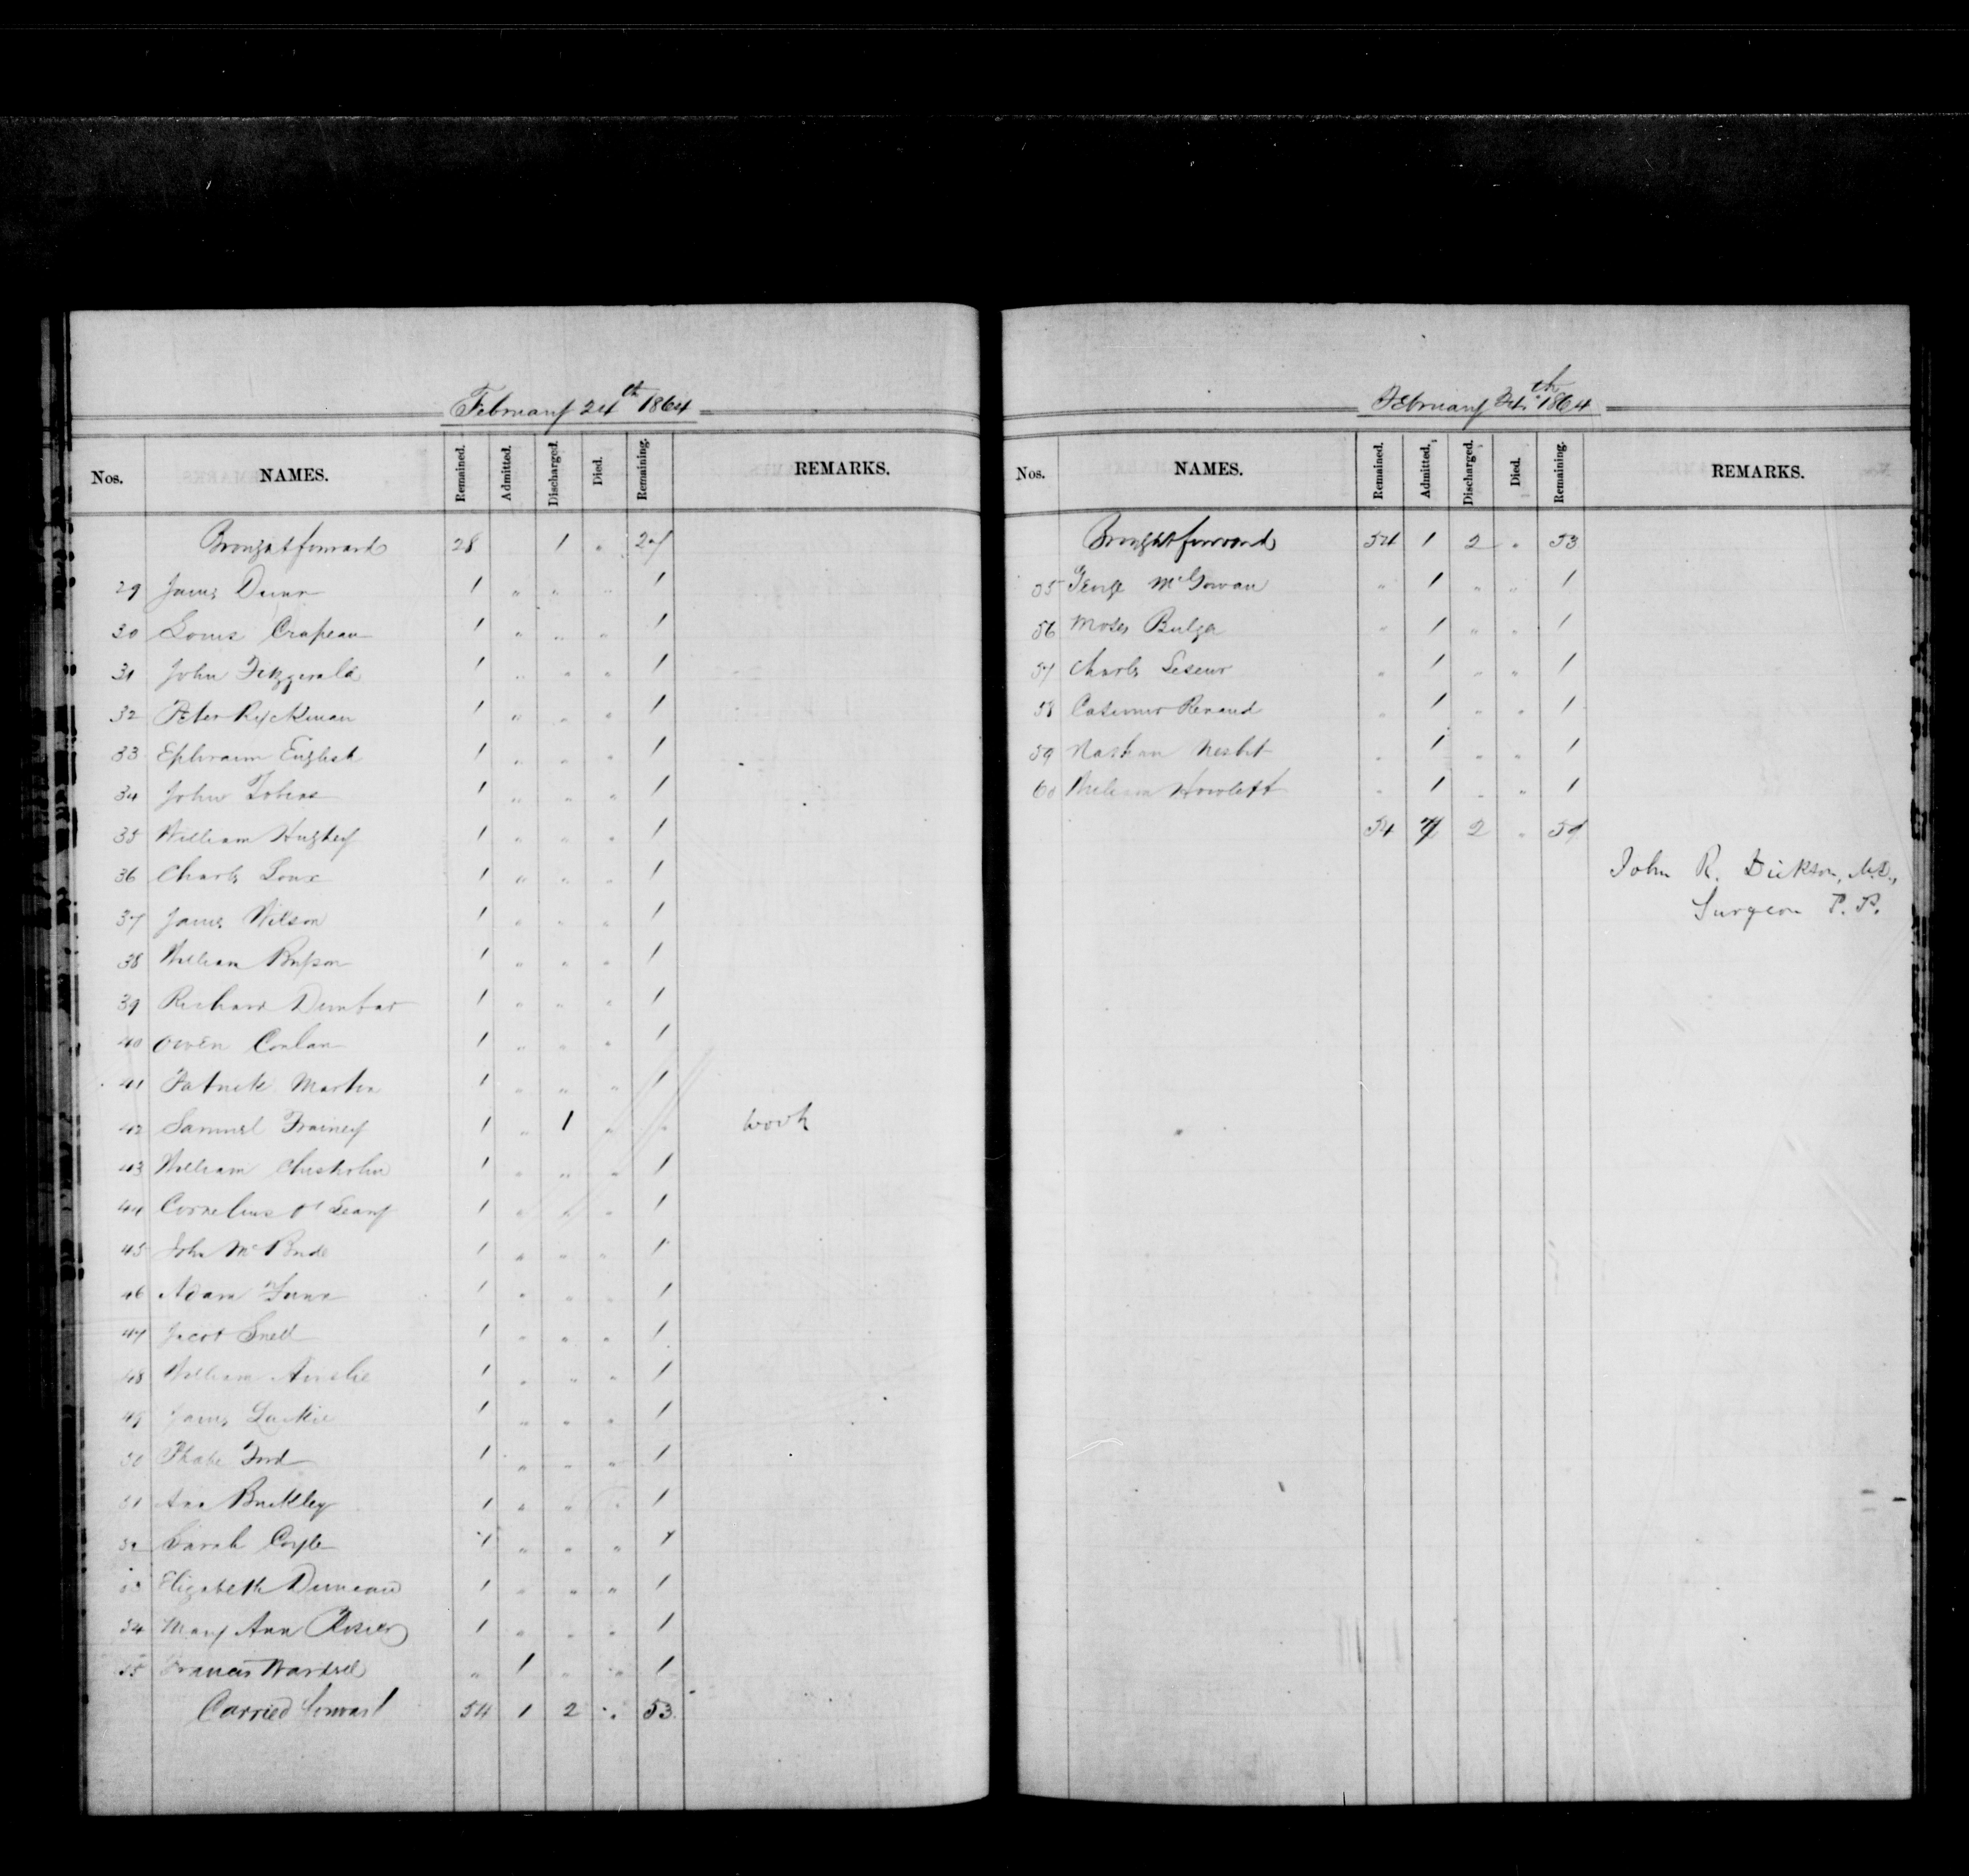 February 24th 1864
Nos. NAMES. Remained. Admitted. Discharged. Died. Remaining. REMARKS.
Brought forward 28 1 " 27
29 James Dunn 1 " " " 1
30 Louis Crapeau 1 " " " 1
31 John Fitzgerald 1 " " " 1
32 Peter Ryckman 1 " " " 1
33 Ephraim English 1 " " " 1
34 John Tobias 1 " " " 1
35 William Hughey 1 " " " 1
36 Charles Loux 1 " " " 1
37 James Wilson 1 " " " 1
38 William 1 " " " 1
39 Richard Dunbar 1 " " " 1
40 Owen Conlan 1 " " " 1
41 Patrick Martin 1 " " " 1
42 Samuel Trainey 1 " 1 " " work
43 William Chisholm 1 " " " 1
44 Cornelius O'Leary 1 " " " 1
45 John McBride 1 " " " 1
46 Adam 1 " " " 1
47 Jacob Snell 1 " " " 1
48 William Ainslie 1 " " " 1
49 James Luckie 1 " " " 1
50 Phabe Ford 1 " " " 1
51 Ann Buckley 1 " " " 1
52 Sarah Coyle 1 " " " 1
53 Elizabeth Duncan 1 " " " 1
54 Mary Ann 1 " " " 1
55 Francis Wartrel " 1 " " 1
Carried forward 54 1 2 " 53
February 24th 1864
Nos. NAMES. Remained. Admitted. Discharged. Died. Remaining. REMARKS.
Brought forward 54 1 2 " 53
55 George McGowan " 1 " " 1
56 Moses Bulger " 1 " " 1
57 Charles Leseur " 1 " " 1
58 Casimir Renaud " 1 " " 1
59 Nathan Nesbit " 1 " " 1
60 William Howlett " 1 " " 1
54 7 2 " 59
John R. Dickson, M.D.,
Surgeon P. P.